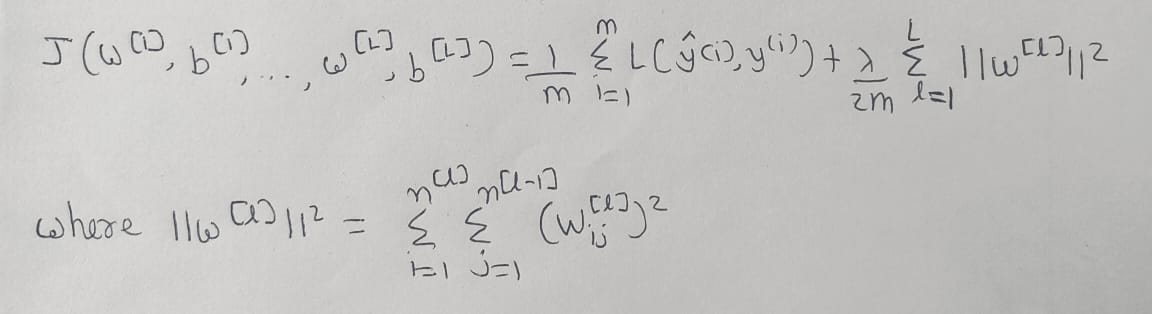 J(w^[1], b^[1], ..., w^[L], b^[L]) = 1/m Σ_{i=1}^{m} L(ŷ^(i), y^(i)) + λ/2m Σ_{l=1}^{L} ||w^[l]||^2
where ||w^[l]||^2 = Σ_{i=1}^{n^[l]} Σ_{j=1}^{n^[l-1]} (w_ij^[l])^2